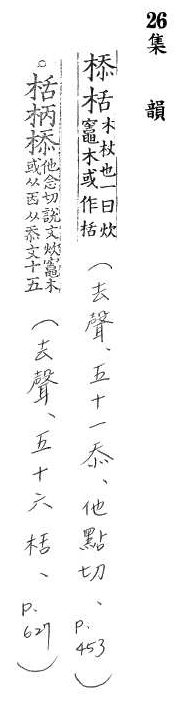 26 集 韻
㮇栝 木杖也一曰炊
竈木或作栝
(去聲、五十一忝、他點切、p.453)
。栝 㮇 他念切說文炊竈木
或从㐁从忝文十五
(去聲、五十六栝、p.627)